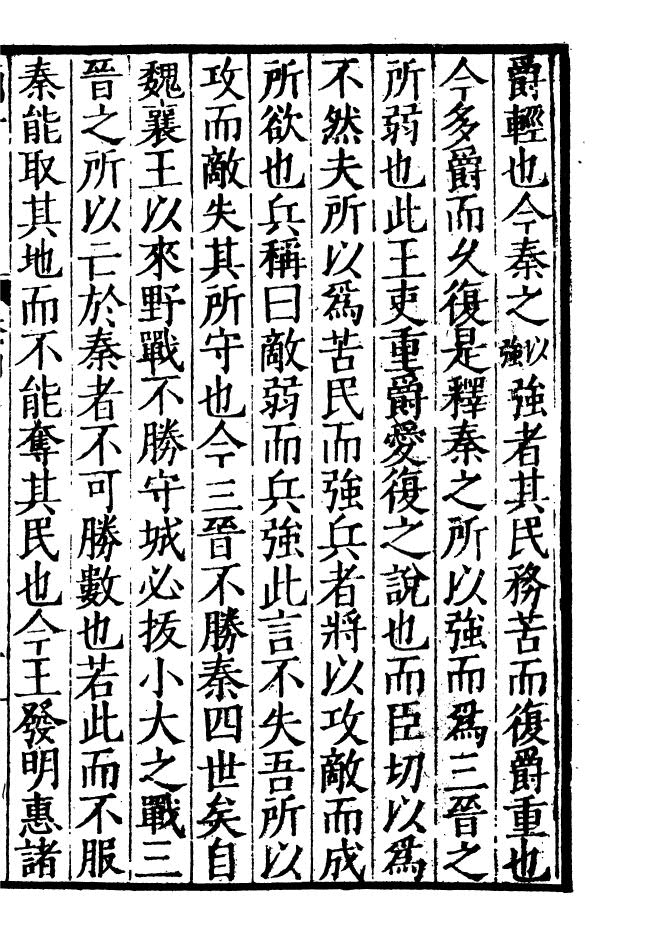 爵輕也今秦之以強強者其民務苦而復爵重也
今多爵而久復是釋秦之所以強而爲三晉之
所弱也此王吏重爵愛復之說也而臣切以爲
不然夫所以爲苦民而強兵者將以攻敵而成
所欲也兵稱曰敵弱而兵強此言不失吾所以
攻而敵失其所守也今三晉不勝秦四世矣自
魏襄王以來野戰不勝守城必拔小大之戰三
晉之所以亡於秦者不可勝數也若此而不服
秦能取其地而不能奪其民也今王發明惠諸